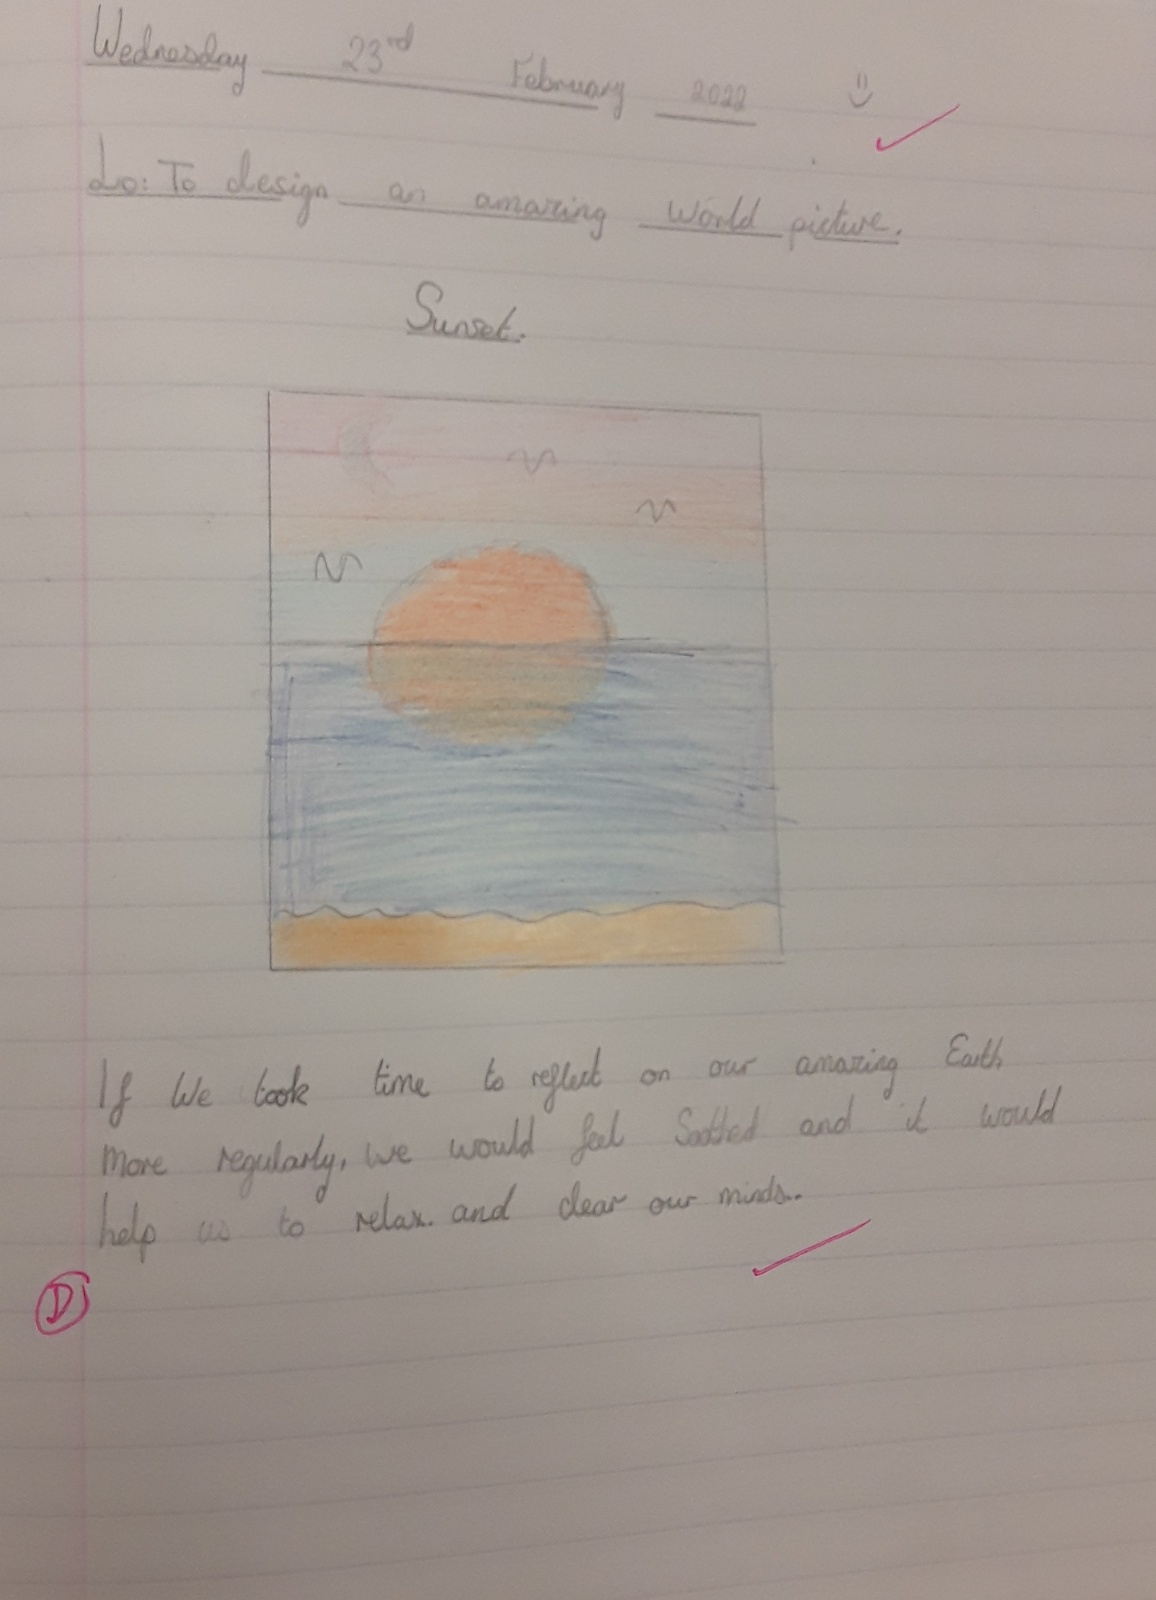 Wednesday 23rd February 2022
Lo: To design an amazing World picture.
Sunset.
If We took time to reflect on our amazing Earth
more regularly, we would feel Soothed and it would
help us to relax. and clear our minds..
D